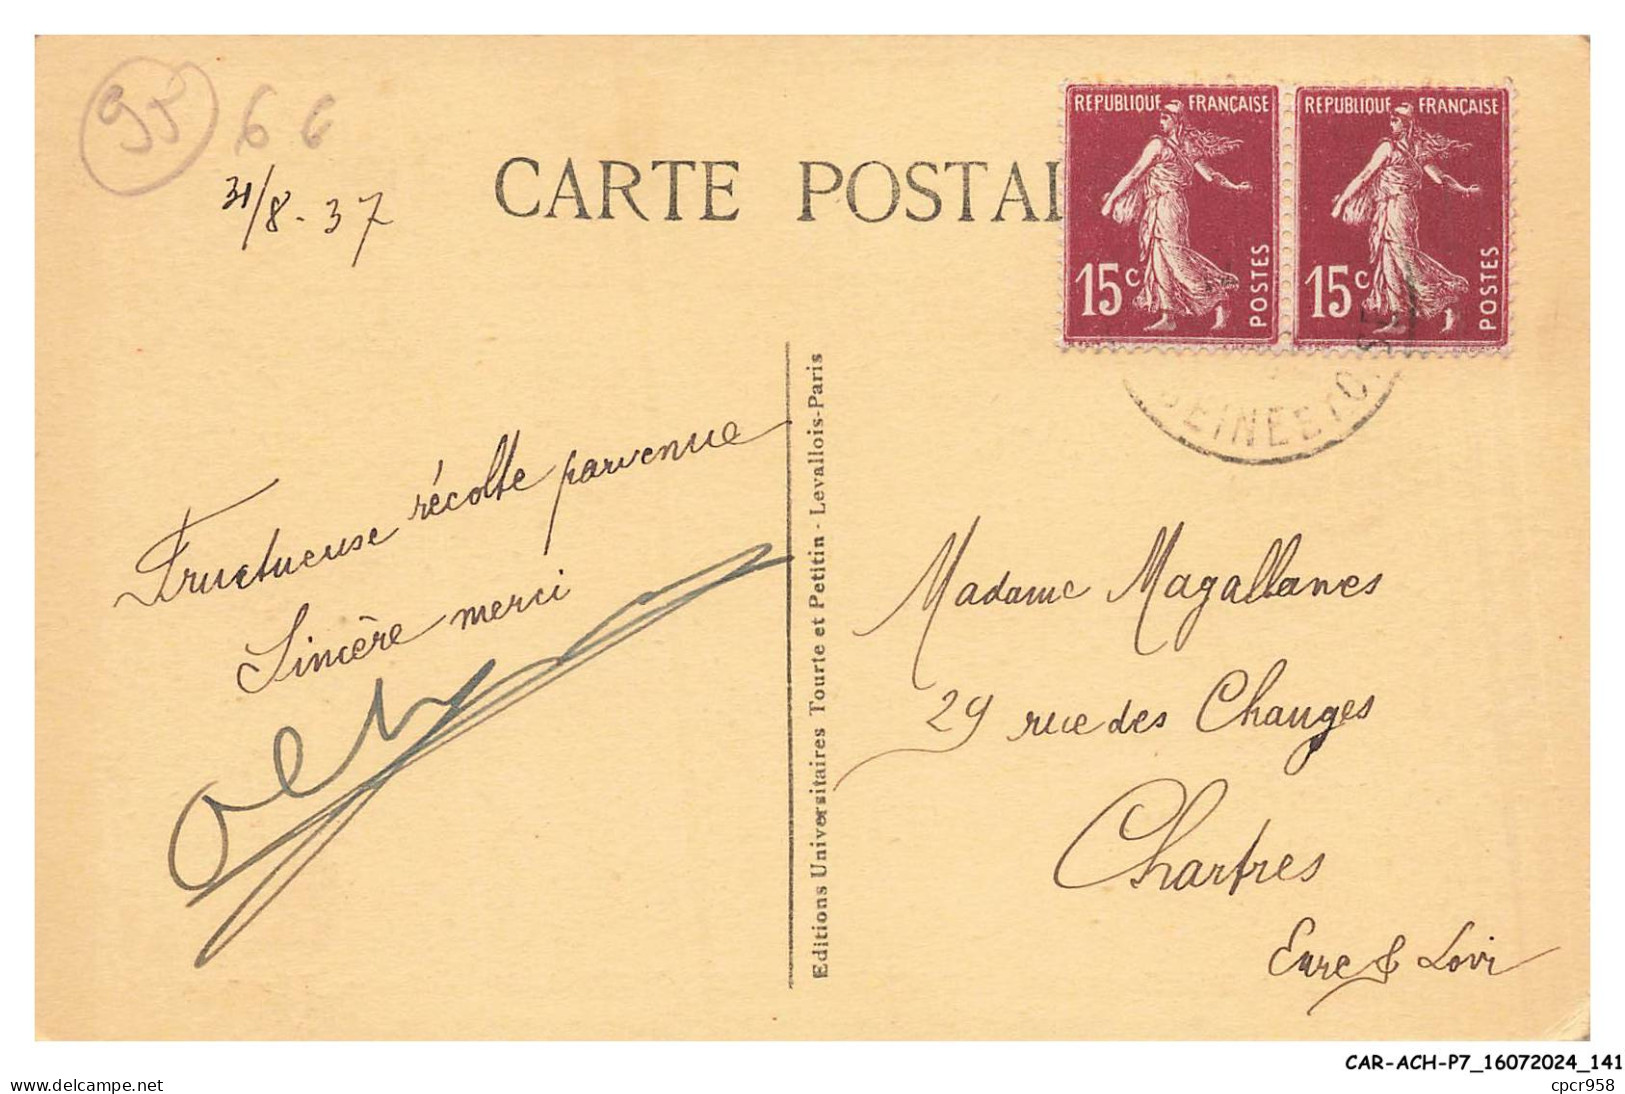 95 66
31/8-37
CARTE POSTAL
REPUBLIQUE FRANÇAISE
15c POSTES
REPUBLIQUE FRANÇAISE
15c POSTES
SEINE ET OISE
Fructueuse récolte parvenue
Sincère merci
Editions Universitaires Tourte et Petitin - Levallois-Paris
Madame Magallanes
29 rue des Changes
Chartres
Eure & Loir
CAR-ACH-P7_16072024_141
www.delcampe.net
cpcr958